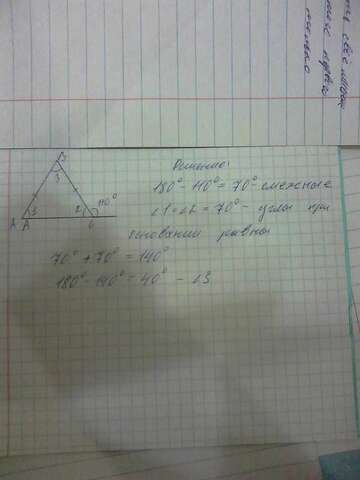 свое
только
B
3
110°
2
A
A
C
Решение:
180° - 110° = 70° - смежные
∠1 = ∠2 = 70° - углы при
основании равны
70° + 70° = 140°
180° - 140° = 40° - ∠3